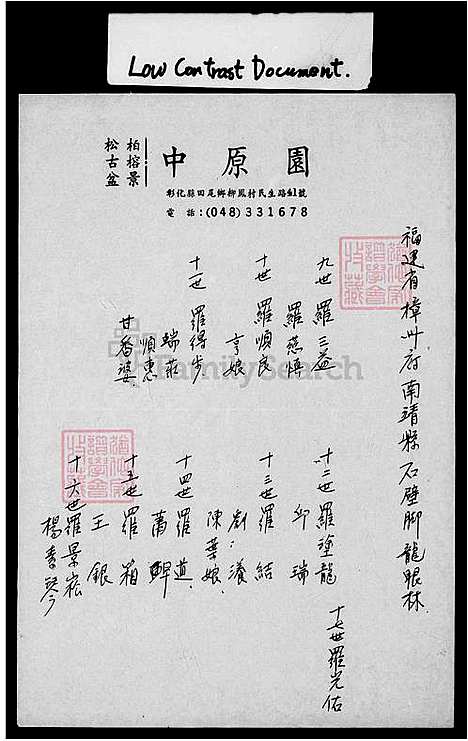 Low Contrast Document.
柏榕景
松古盆
中原園
彰化縣田尾鄉柳鳳村民生路41號
電話:(048)331678
福建省樟州府南靖縣石壁脚龍眼林
九世 羅三益
羅慈慎
十世 羅順良
亨娘
十一世 羅得步
端莊
順惠
甘香婆
十二世羅塗龍
邱瑞
十三世羅結
劉
陳葉娘
十四世羅道
蕭
十五世羅箱
王銀
十六世羅景崧
楊秀琴
十七世羅光佑
FamilySearch